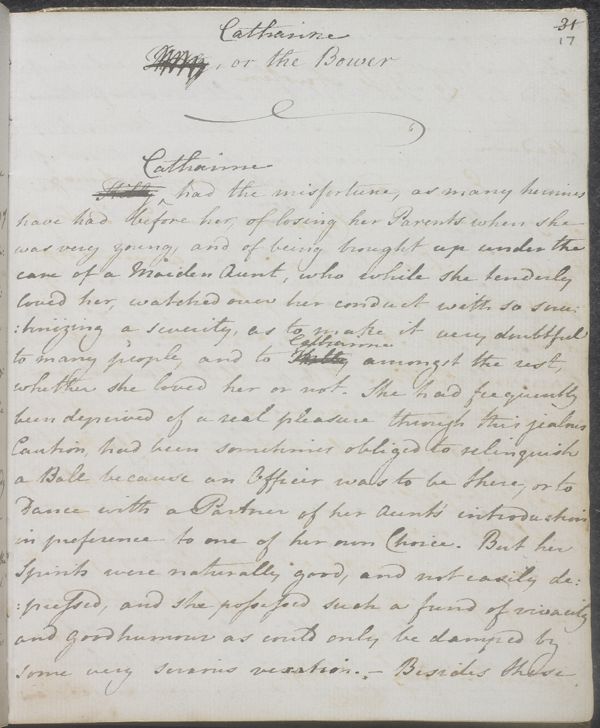 31
17
Catharine
Kitty, or the Bower
Catharine
Kitty had the misfortune, as many heroines
have had before her, of losing her Parents when she
was very young, and of being brought up under the
care of a Maiden Aunt, who while she tenderly
loved her, watched over her conduct with so scru:
:tinizing a severity, as to make it very doubtful
Catharine
to many people, and to Kitty amongst the rest,
whether she loved her or not. She had frequently
been deprived of a real pleasure through this jealous
Caution, had been sometimes obliged to relinquish
a Ball because an Officer was to be there, or to
Dance with a Partner of her Aunt's introduction
in preference to one of her own Choice. But her
Spirits were naturally good, and not easily de:
:pressed, and she possessed such a fund of vivacity
and good humour as could only be damped by
some very serious vexation. – Besides these